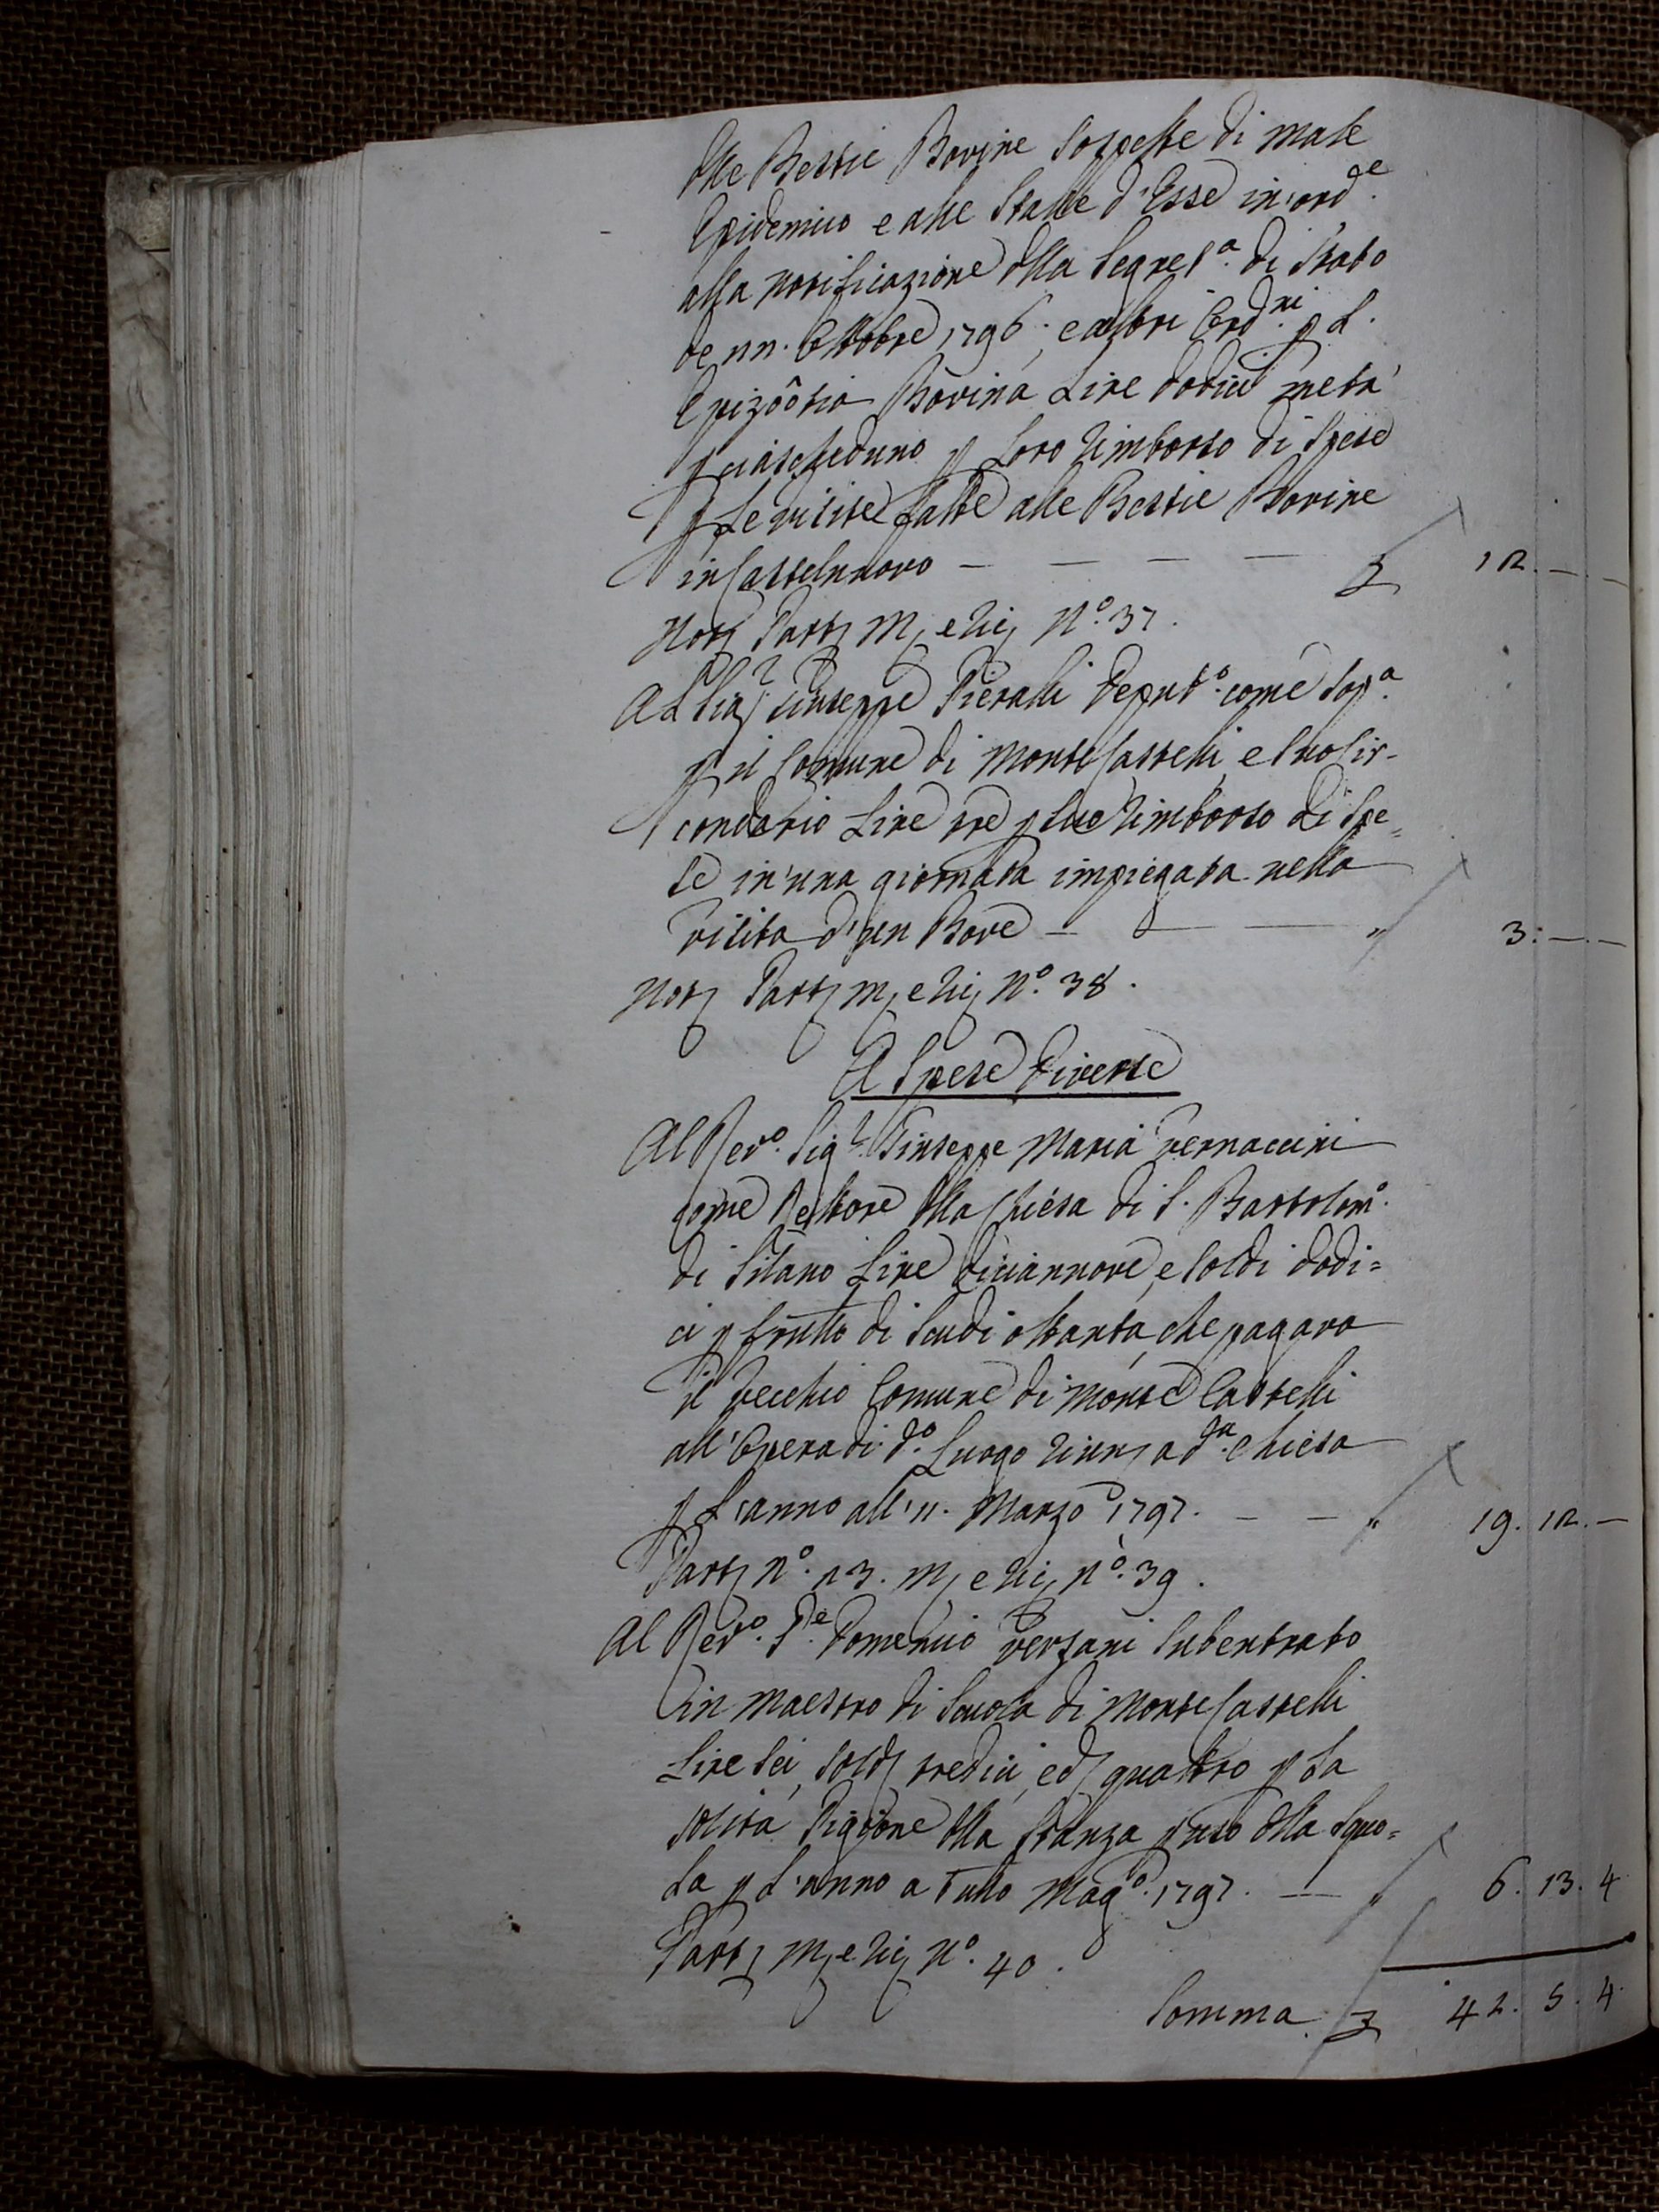 dlle Bestie Bovine Sospette di male
Epidemico e alle Stalle d'Esse in ord.e
alla notificazione dlla Segret.a di Stato
de 22. Ottobre 1796; e altri Ord.ni p L.
Epizootia Bovina Lire dodici metà
p ciascheduno p Loro Rimborso di Spese
p Le visite fatte alle Bestie Bovine
in Castelnuovo — — — — £ 12. — —
N.o 37.
Al Sig.r Giuseppe Pieralli Deput.o come Sop.a
p il Comune di Monte Castelli e Suo Cir-
condario Lire tre p Suo Rimborso di Spe=
se in una giornata impiegata nella
visita d'un Bove — — — " 3: — —
N.o 38.
A Spese Diverse
Al Rev.o Sig.r Giuseppe Maria Vernaccini
come Rettore dlla Chiesa di S. Bartolom.o
di Silano Lire diciannove, e soldi dodi=
ci p frutto di Scudi ottanta, che pagava
il Vecchio Comune di Monte Castelli
all'Opera di d.o Luogo Riun; a d.a Chiesa
p L'anno all'11. Marzo 1797. — — " 19. 12. —
N.o 39.
Al Rev.o P.e Domenico Verzani Subentrato
in Maestro di Scuola di Monte Castelli
Lire Sei, Sold; tredici, e d; quattro p La
solita Pigione dlla Stanza p uso dlla Squo=
La p L'anno a Tutto Mag.o 1797. — " 6. 13. 4
N.o 40.
Somma £ 42. 5. 4